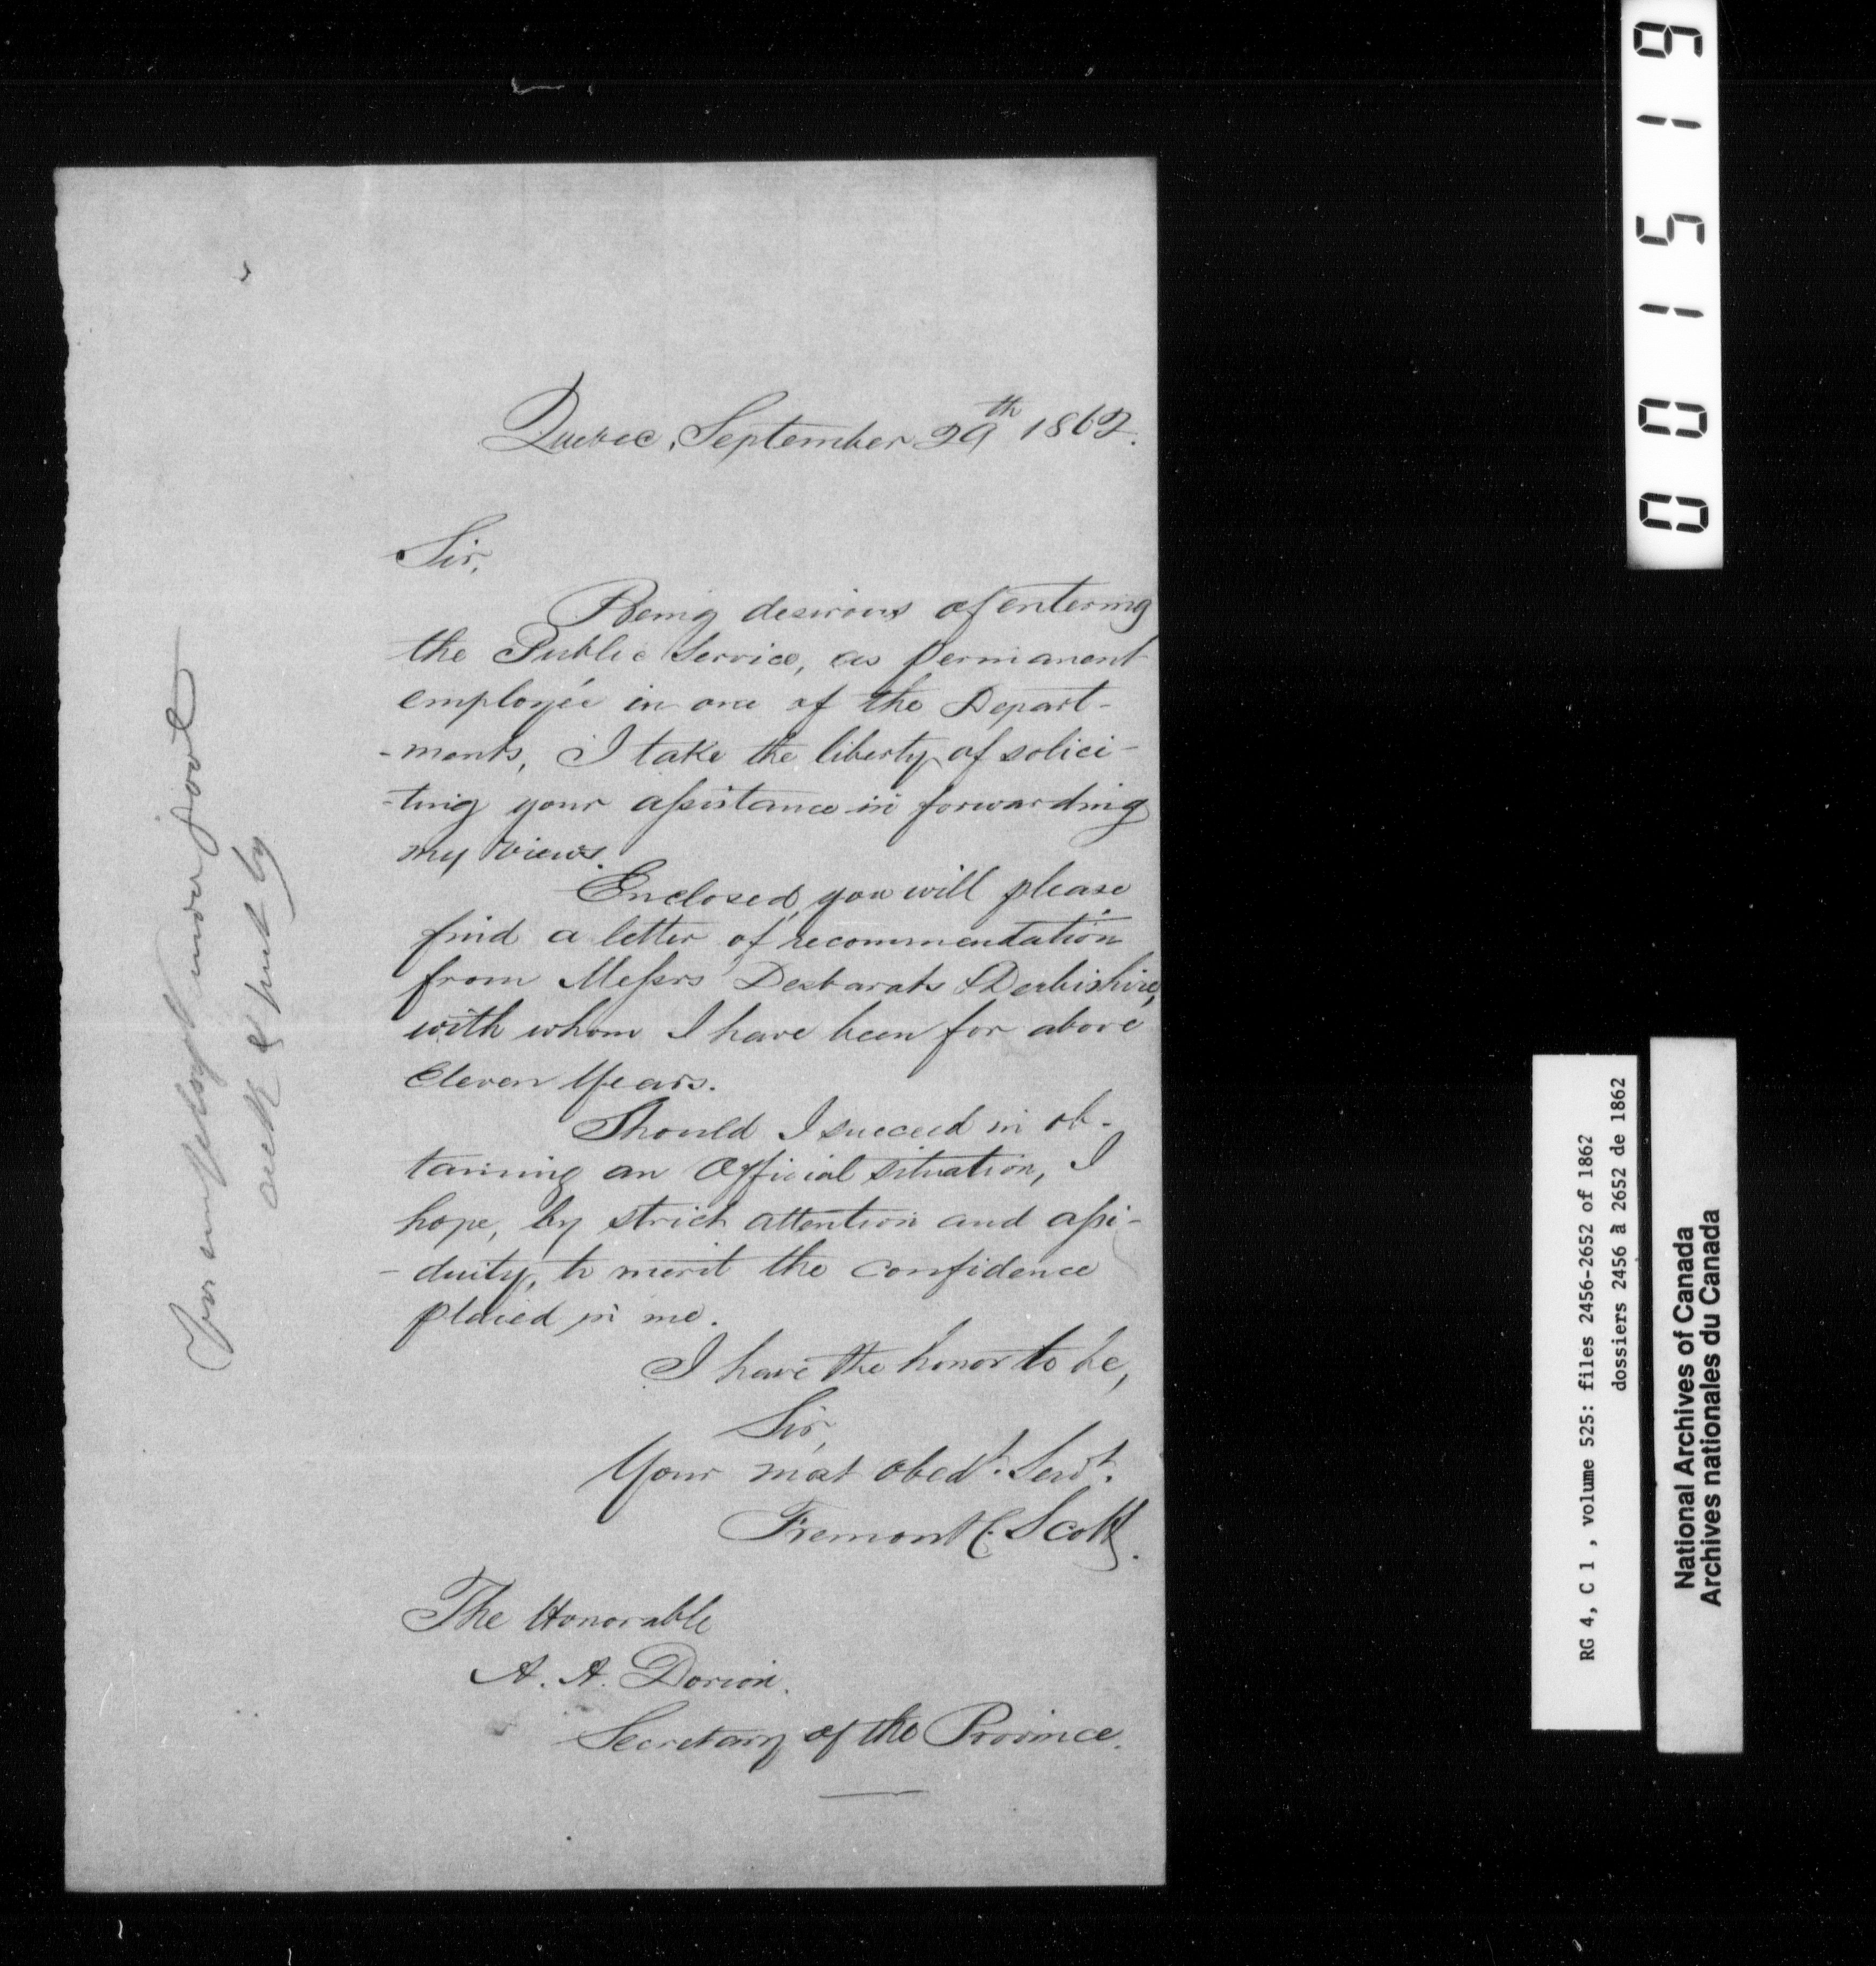 Quebec, September 29th 1862.
Sir,
Being desirous of entering
the Public Service, as permanent
employée in one of the Depart-
-ments, I take the liberty of solici-
-ting your assistance in forwarding
my views.
Enclosed, you will please
find a letter of recommendation
from Messrs Desbarats & Derbishire,
with whom I have been for above
Eleven Years.
Should I succeed in ob-
taining an Official situation, I
hope, by strict attention and assi-
-duity, to merit the confidence
placed in me.
I have the honor to be,
Sir,
Your most obedt. Servt.
Fremont C. Scott.
The Honorable
A. A. Dorion.
Secretary of the Province.
For employt
ack & put by
001519
RG 4, C 1 , volume 525: files 2456-2652 of 1862
dossiers 2456 à 2652 de 1862
National Archives of Canada
Archives nationales du Canada